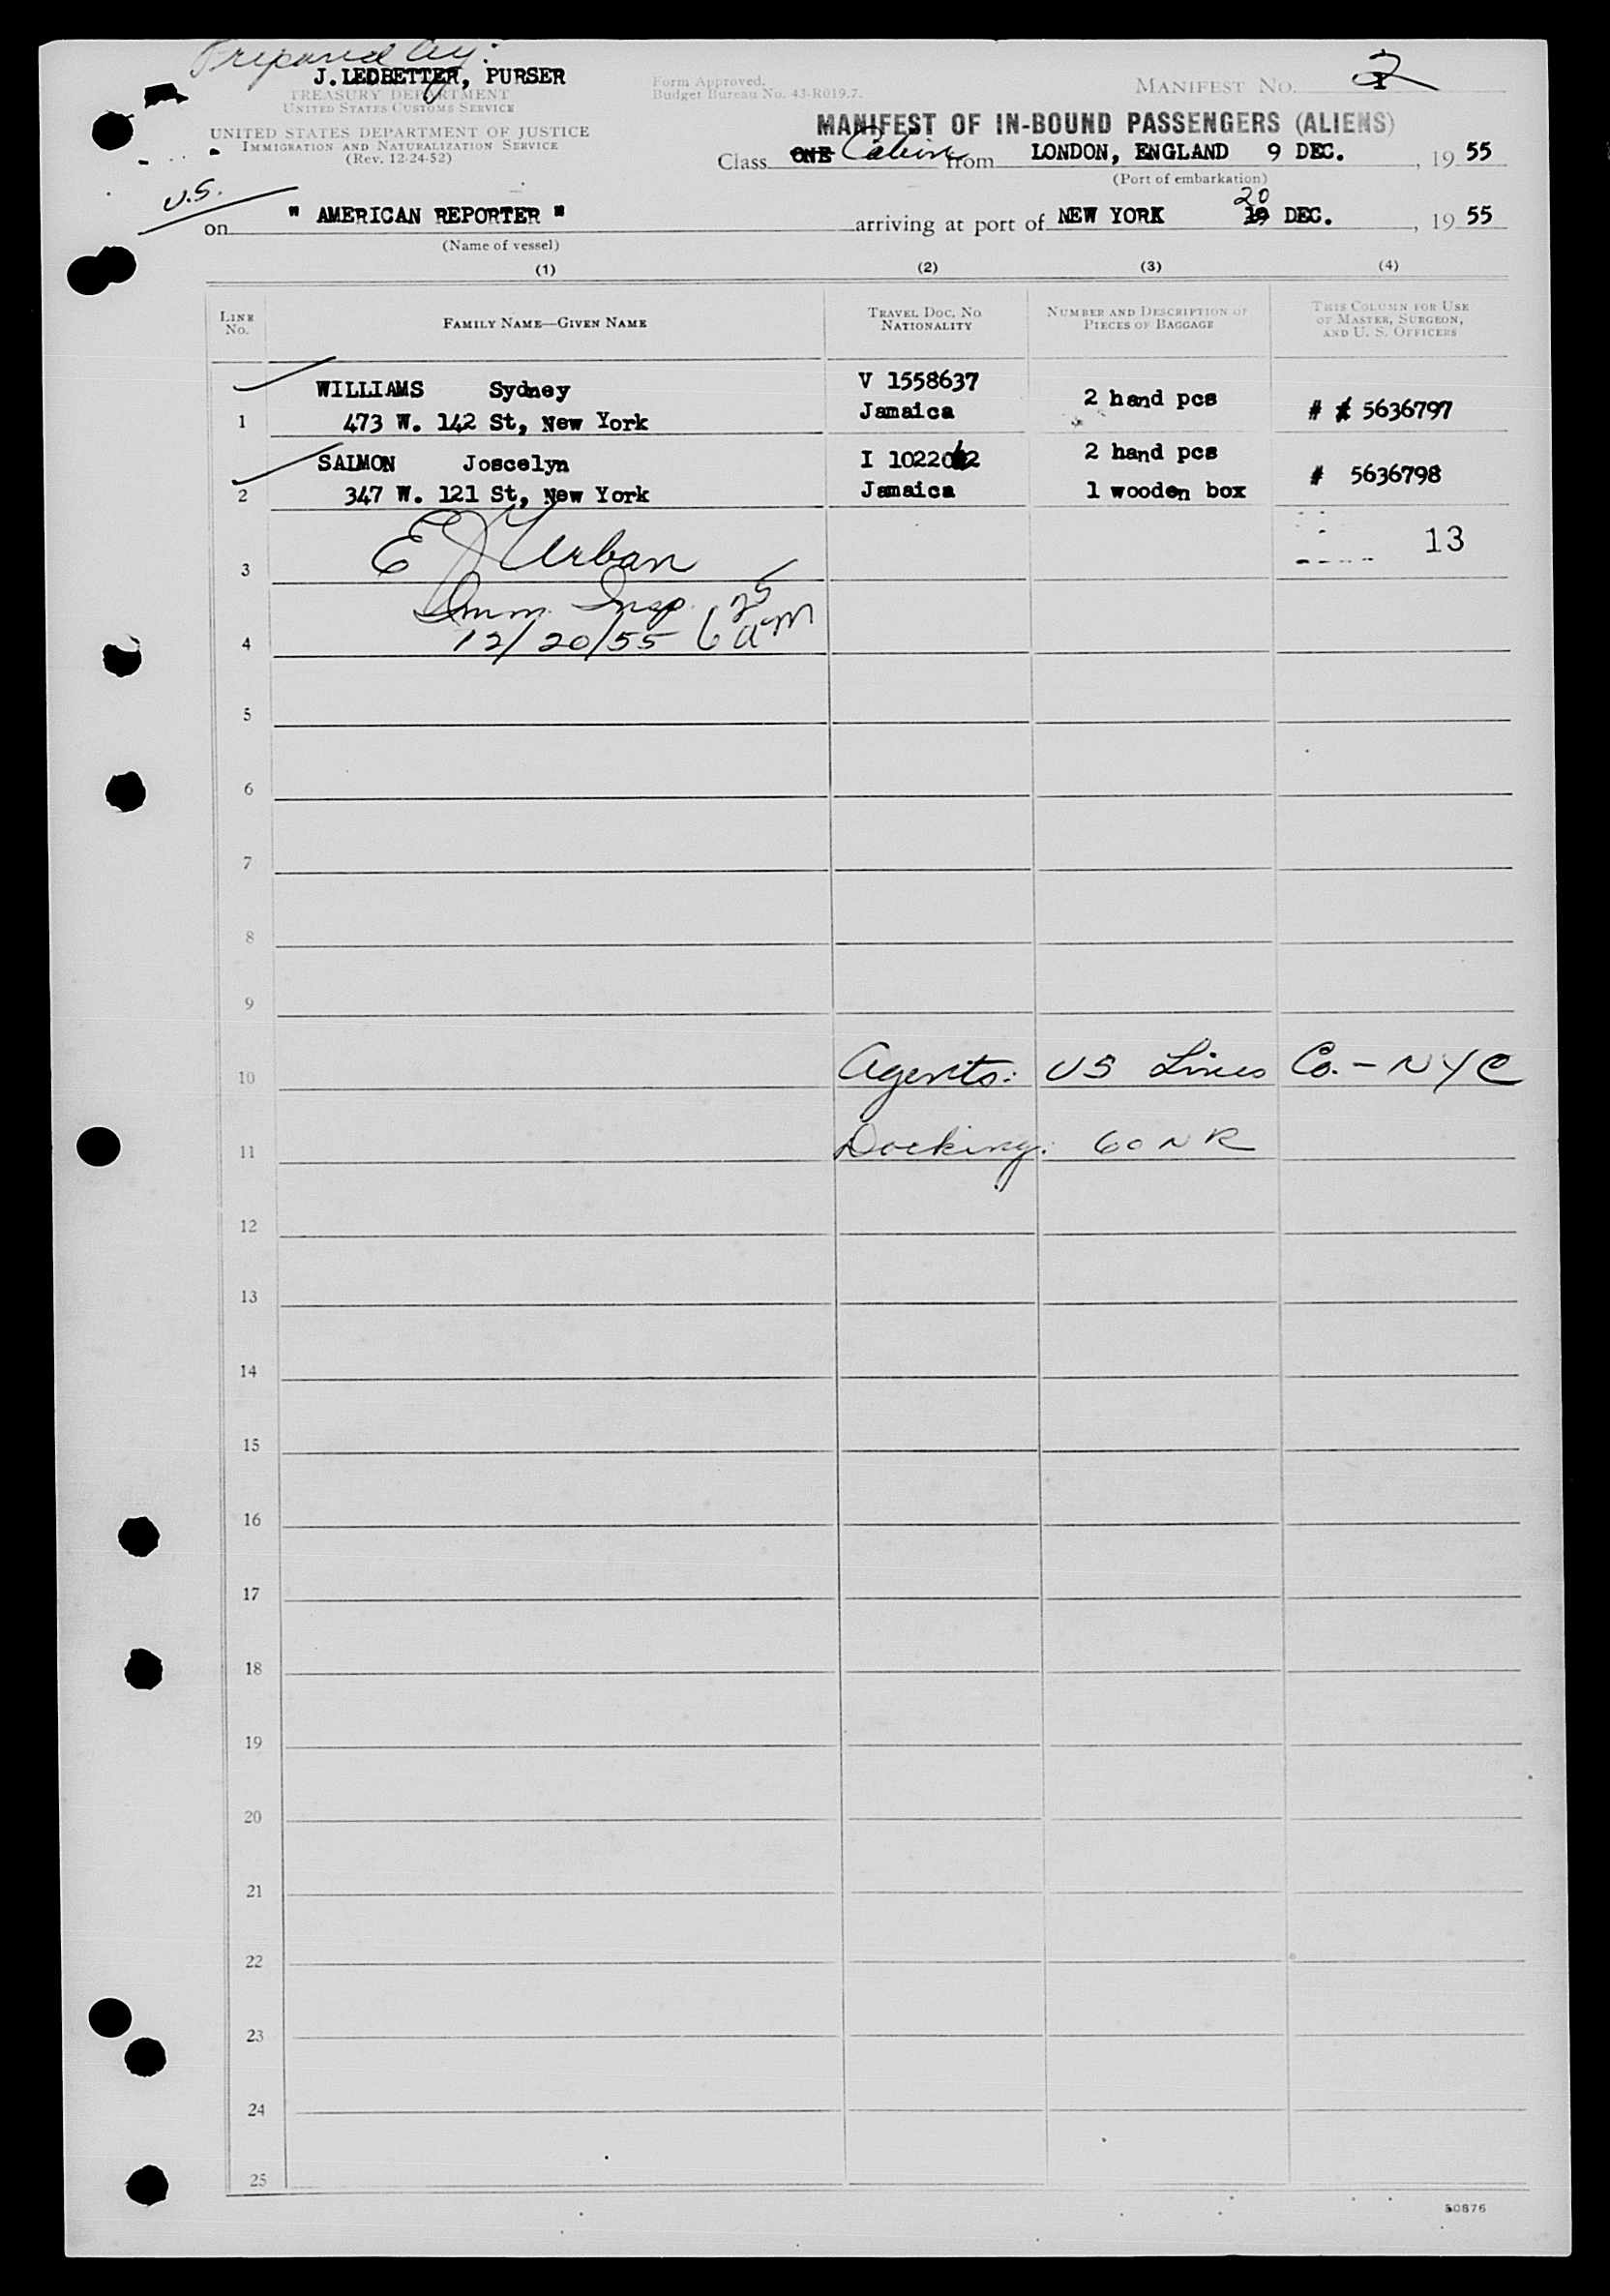 Prepared by:
J. LEDBETTER, PURSER
TREASURY DEPARTMENT
UNITED STATES CUSTOMS SERVICE
UNITED STATES DEPARTMENT OF JUSTICE
IMMIGRATION AND NATURALIZATION SERVICE
(Rev. 12-24-52)
Form Approved.
Budget Bureau No. 43-R019.7.
MANIFEST No. 2
MANIFEST OF IN-BOUND PASSENGERS (ALIENS)
Class ONE Cabin from LONDON, ENGLAND 9 DEC., 19 55
(Port of embarkation)
U.S.
on " AMERICAN REPORTER " arriving at port of NEW YORK 19 20 DEC., 19 55
(Name of vessel)
(1) (2) (3) (4)
LINE No. FAMILY NAME—GIVEN NAME TRAVEL DOC. NO. NATIONALITY NUMBER AND DESCRIPTION OF PIECES OF BAGGAGE THIS COLUMN FOR USE OF MASTER, SURGEON, AND U. S. OFFICERS
WILLIAMS Sydney V 1558637 2 hand pcs
1 473 W. 142 St, New York Jamaica # 5636797
SALMON Joscelyn I 1022062 2 hand pcs
2 347 W. 121 St, New York Jamaica 1 wooden box # 5636798
3 E J Urban 13
Imm. Insp.
4 12/20/55 6 25 am
5
6
7
8
9
10 Agents: US Lines Co. - NYC
11 Docking: 60 NR
12
13
14
15
16
17
18
19
20
21
22
23
24
25
50876